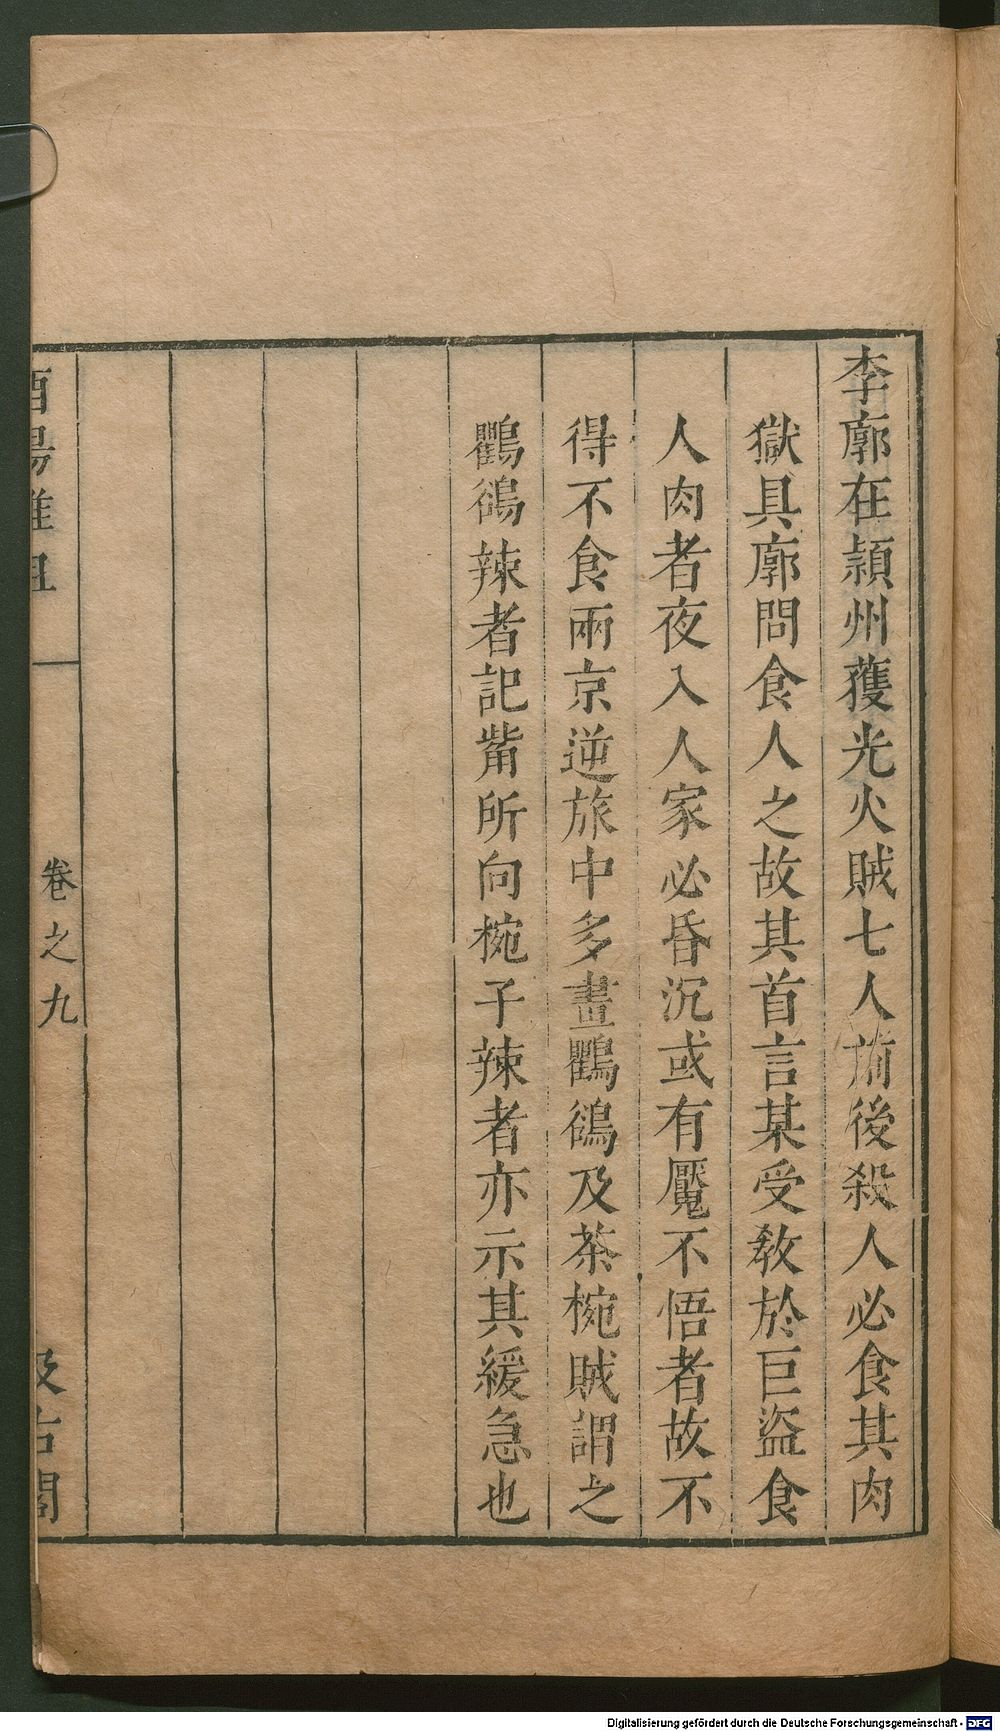 李廓在潁州獲光火賊七人前後殺人必食其肉
獄具廓問食人之故其首言某受敎於巨盜食
人肉者夜入人家必昏沉或有魘不悟者故不
得不食兩京逆旅中多畫鸜鵒及茶椀賊謂之
鸜鵒辣者記觜所向椀子辣者亦示其緩急也
酉陽雜俎
卷之九
汲古閣
Digitalisierung gefördert durch die Deutsche Forschungsgemeinschaft - DFG